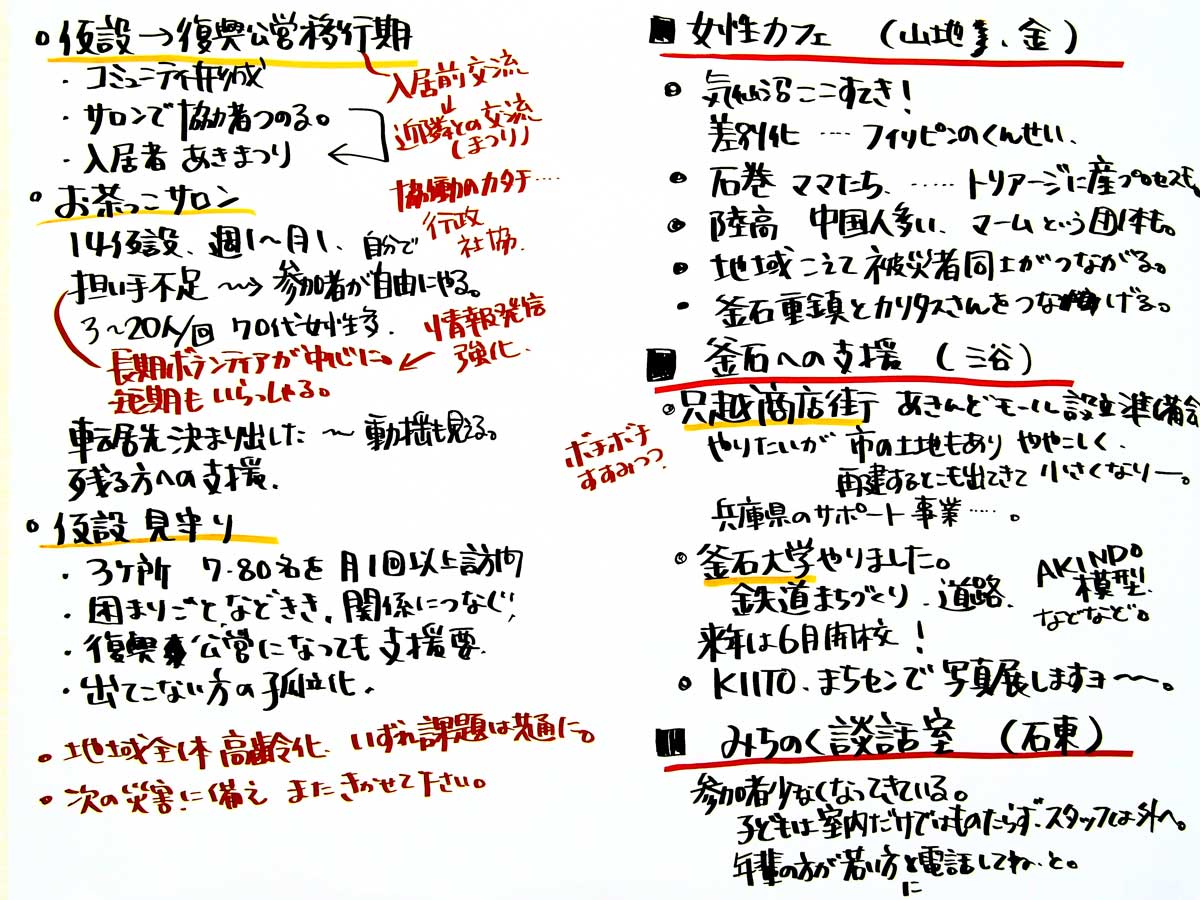 仮設→復興公営移行期
・コミュニティ形成
・サロンで協力者つのる。
・入居者 あきまつり
入居前交流
↓
近隣との交流
(まつり)
お茶っこサロン
協働のカタチ‥‥
行政
社協
14仮設、週1〜月1、自分で
担い手不足 〜〉参加者が自由にやる。
3〜20人/回 70代女性多.
情報発信
強化.
長期ボランティアが中心に。
短期も いらっしゃる。
転居先決まり出した 〜 動揺も見える。
残る方への支援.
仮設 見守り
・3ヶ所 7-80名を 月1回以上訪問
・困まりごとなどきき、関係につなぐ!
・復興公営になっても支援要.
・出てこない方の孤立化.
・地域全体高齢化、いずれ課題は共通に。
・次の災害に備え またきかせて下さい。
■ 女性カフェ (山地、金)
気仙沼ここすてき!
差別化 ‥‥ フィリピンのくんせい、
石巻 ママたち、‥‥ トリアージに産プロセスも、
陸高 中国人多い、マームという団体も。
地域こえて被災者同士がつながる。
・釜石重鎮とカリタスさんをつなげる。
■ 釜石への支援 (三谷)
只越商店街 あきんどモール設立準備会
やりたいが 市の土地もあり ややこしく.
再建するとこも出てきて 小さくなりー。
ボチボチ
すすみつつ?
兵庫県のサポート事業‥‥。
釜石大学やりました。
鉄道まちづくり、道路、
AKINDO
模型
などなど。
来年は6月開校!
KIITO、まちセンで写真展しますヨ〜〜。
■ みちのく談話室 (石東)
参加者少なくなってきている。
子どもは室内だけではものたらず、スタッフは外へ。
年輩の方が若い方と電話してね、と。
に